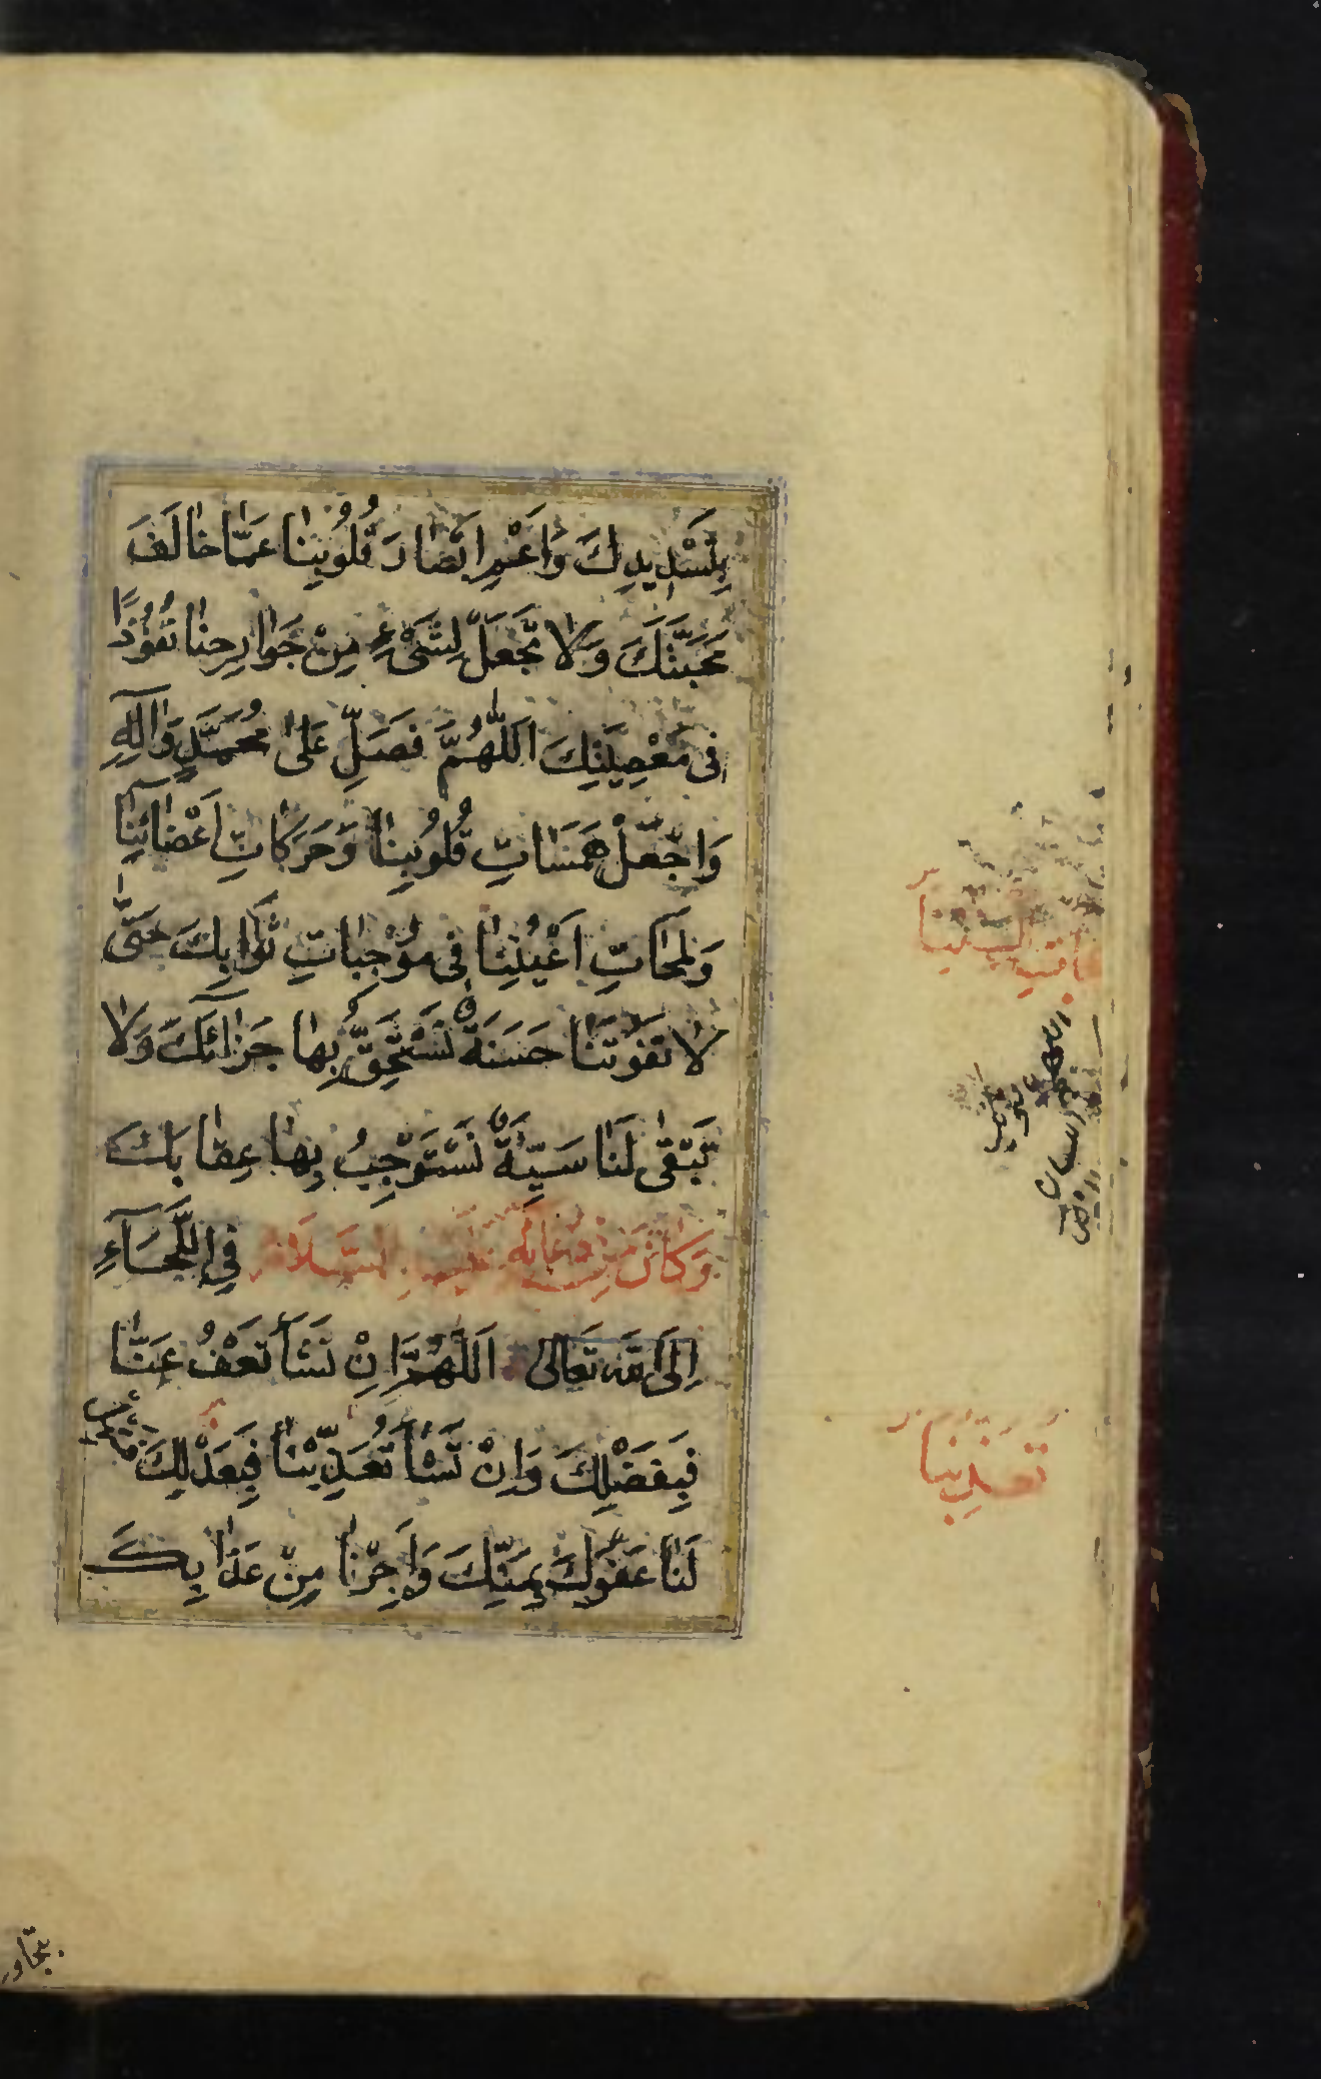 بِتَسْدِيدِكَ وَاَعْمِ اَبْصَارَ قُلُوبِنَا عَمَّا خَالَفَ
مَحَبَّتَكَ وَلَا تَجْعَلْ لِشَىْءٍ مِنْ جَوَارِحِنَا نُفُوذًا
فِى مَعْصِيَتِكَ اَللّٰهُمَّ فَصَلِّ عَلٰى مُحَمَّدٍ وَاٰلِهِ
وَاجْعَلْ هَمَسَاتِ قُلُوبِنَا وَحَرَكَاتِ اَعْضَائِنَا
وَلَمَحَاتِ اَعْيُنِنَا فِى مُوجِبَاتِ ثَوَابِكَ حَتّٰى
لَا تَفُوتَنَا حَسَنَةٌ نَسْتَحِقُّ بِهَا جَزَآئَكَ وَلَا
تَبْقٰى لَنَا سَيِّئَةٌ نَسْتَوْجِبُ بِهَا عِقَابَكَ
وَكَانَ مِنْ دُعَائِهِ عَلَيْهِ السَّلَامُ فِى اللَّجَآءِ
اِلَى اللّٰهِ تَعَالٰى اَللّٰهُمَّ اِنْ تَشَأْ تَعْفُ عَنَّا
فَبِفَضْلِكَ وَاِنْ تَشَأْ تُعَذِّبْنَا فَبِعَدْلِكَ
لَنَا عَفْوَكَ بِمَنِّكَ وَاَجِرْنَا مِنْ عَذَابِكَ
تعذبنا